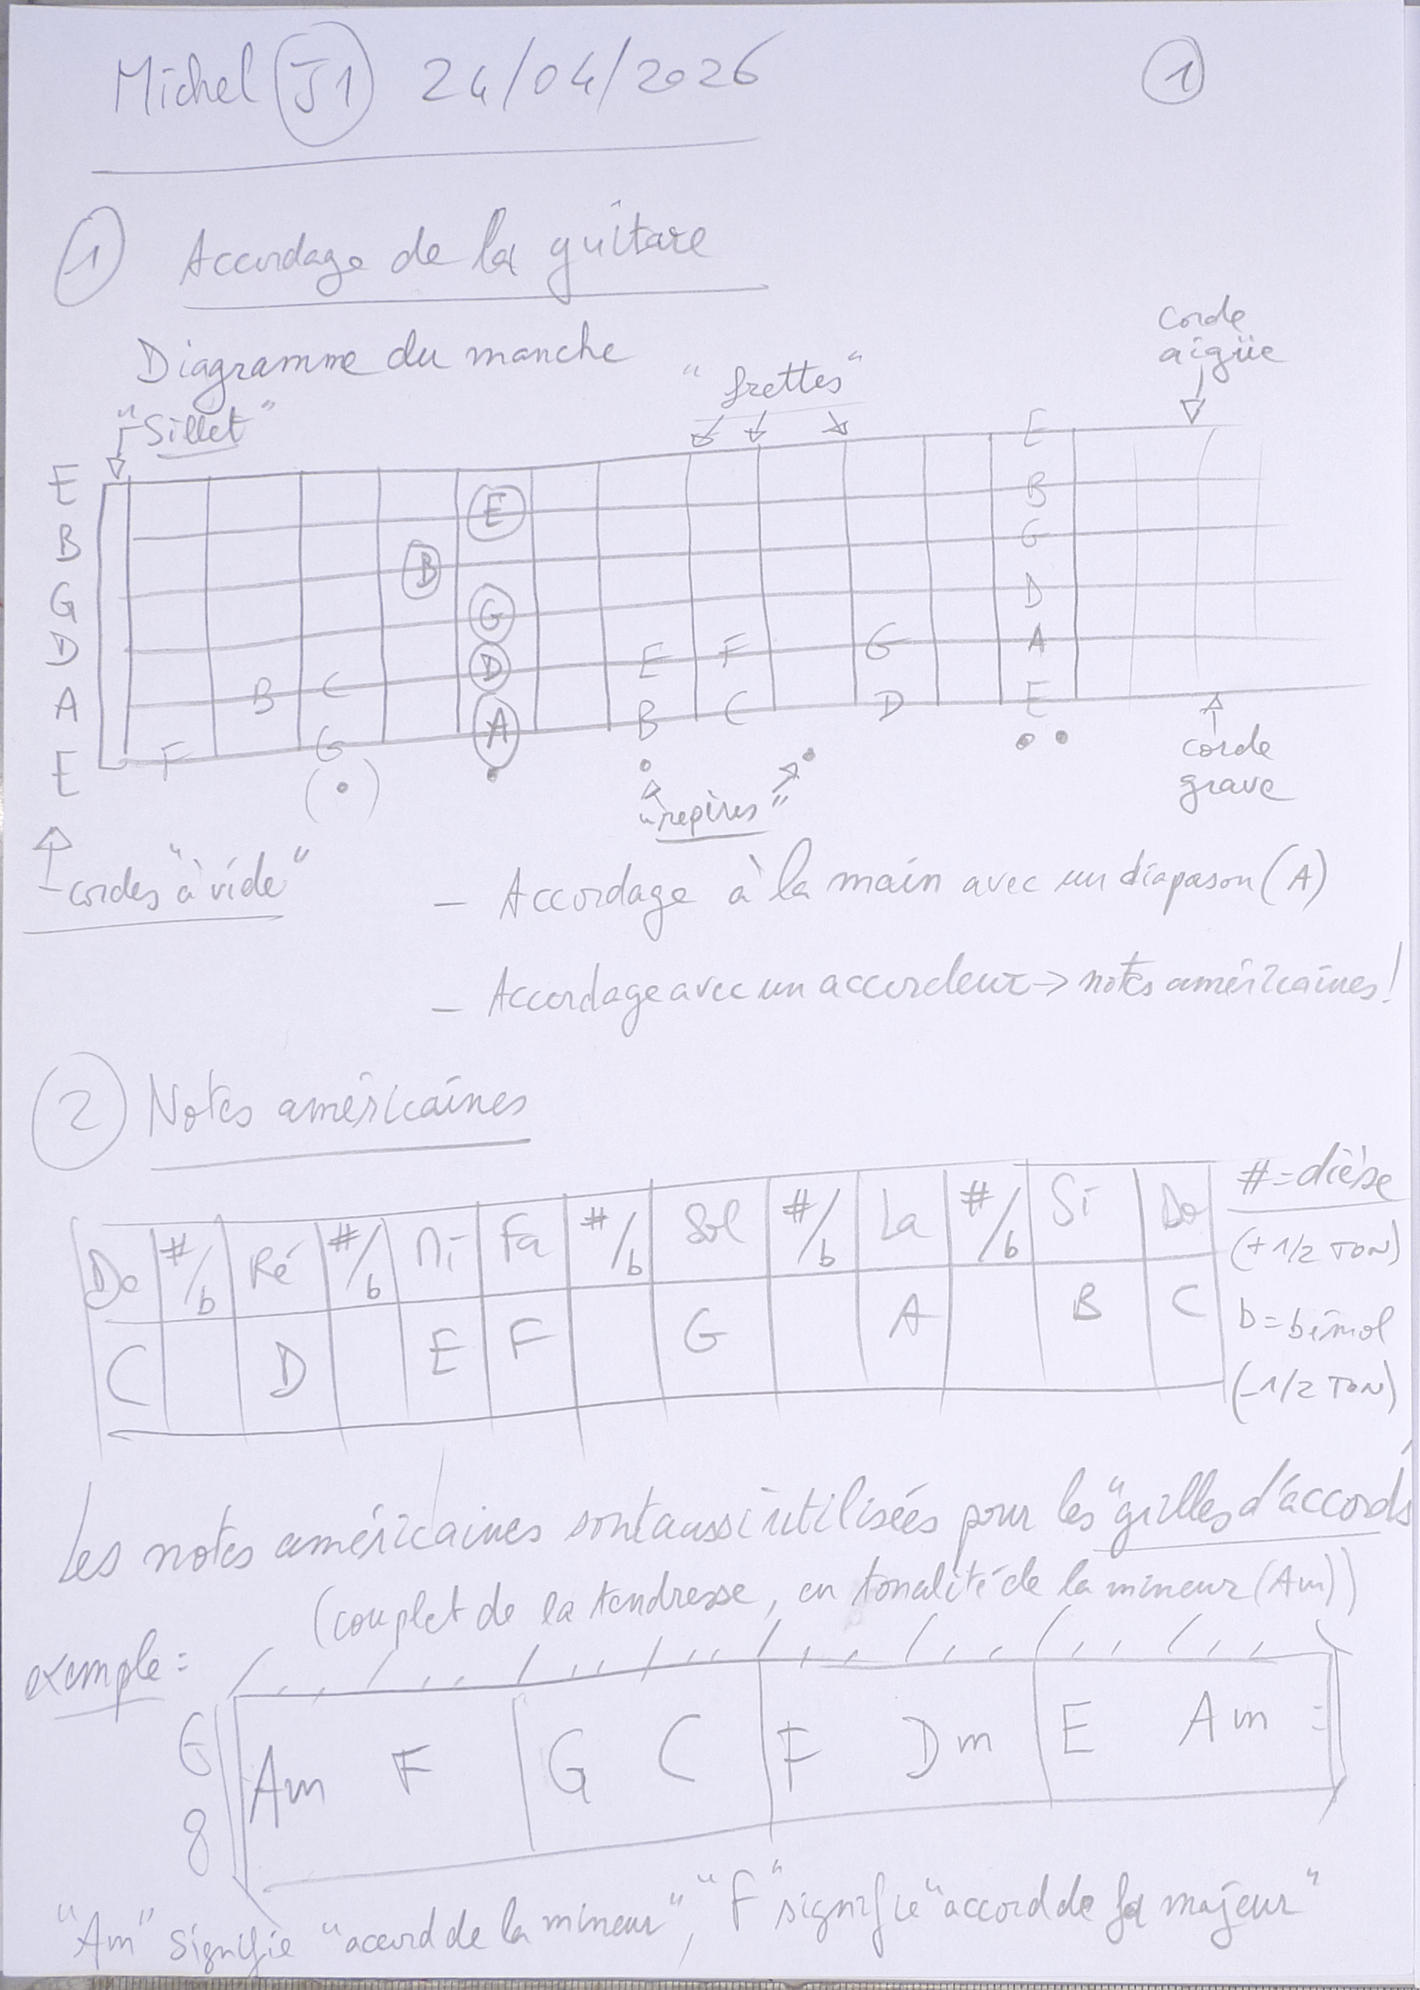 Michel J1 24/04/2026
1
1 Accordage de la guitare
Diagramme du manche
"Sillet"
"frettes"
corde
aigüe
E
B
G
D
A
E
E
B
G
D
A
B C E F G
F G B C D
E
B
G
D
A
E
cordes "à vide"
"repères"
corde
grave
- Accordage à la main avec un diapason (A)
- Accordage avec un accordeur → notes américaines!
2 Notes américaines
Do #/b Ré #/b Mi Fa #/b Sol #/b La #/b Si Do
C D E F G A B C
# = dièse
(+ 1/2 TON)
b = bémol
(- 1/2 TON)
Les notes américaines sont aussi utilisées pour les "grilles d'accords
(couplet de la tendresse, en tonalité de la mineur (Am))
exemple :
6
8
Am F G C F Dm E Am :
"Am" signifie "accord de la mineur", "F" signifie "accord de fa majeur"